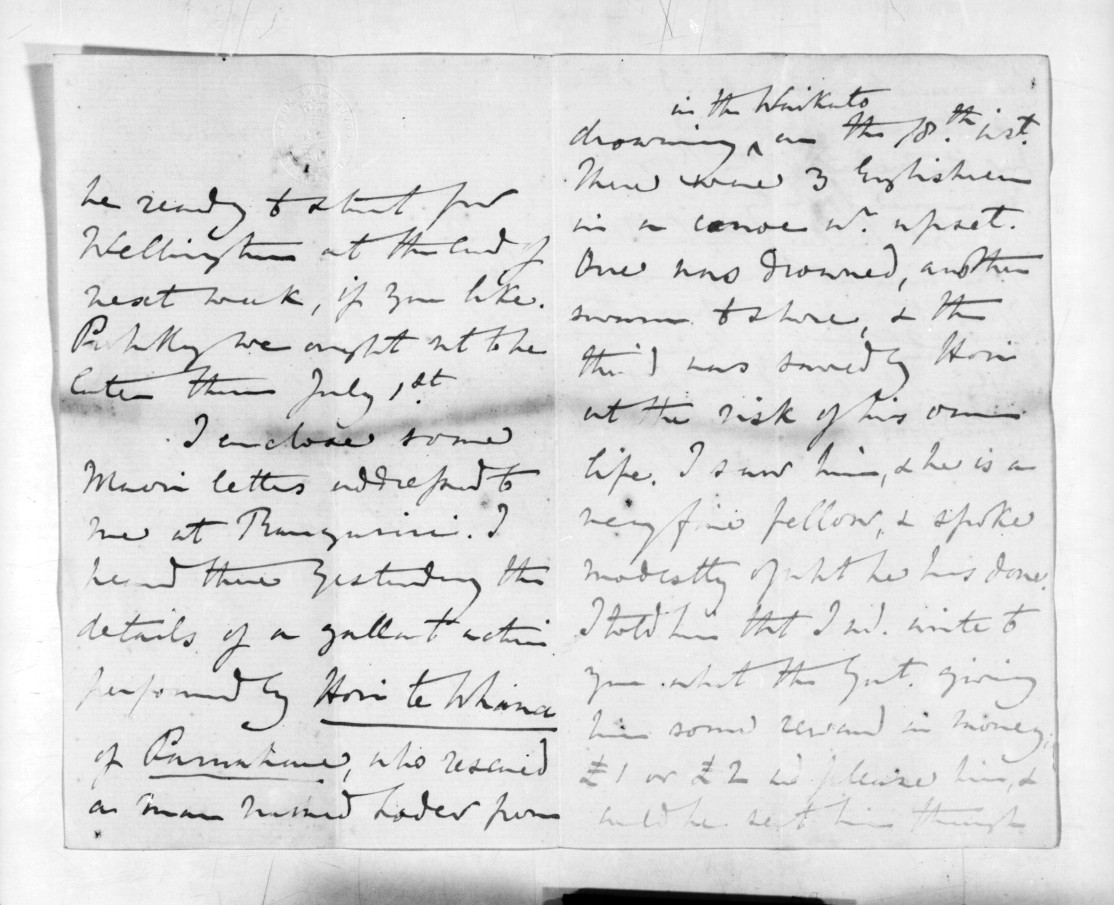 be ready to start for
Wellington at the End of
next week, if you like.
Probably we ought not to be
later than July 1st
I enclose some
Maori letters addressed to
me at Rangiriri. I
heard there yesterday the
details of a gallant action
performed by Hori te Whana
of, who rescued
a man named from
in the Waikato
drowning on the 18th inst.
There were 3 Englishmen
in a canoe wh. upset.
One was drowned, another
swam to shore, & the
third was saved by Hori
at the risk of his own
life. I saw him, & he is a
very fine fellow, & spoke
modestly of what he has done.
I told him that I wd. write to
you abt the Govt. giving
him some reward in money.
£1 or £2 wd please him, &
could be sent him through